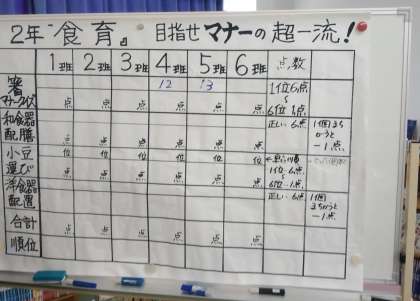 2年『食育』 目指せマナーの超一流!
1班 2班 3班 4班 5班 6班 点数
箸 12 13 1位6点
マナークイズ 点 点 点 点 点 点 〜
6位1点
和食器 正しい 6点 1個まち
配膳 点 点 点 点 点 点 がうと
-1点
小豆 位 位 位 位 位 位
運び 点 点 点 点 点 点 1位-6点
〜
6位-1点
洋食器 正しい 6点 1個
配置 まちがうと
-1点
合計 点 点 点 点 点 点
順位